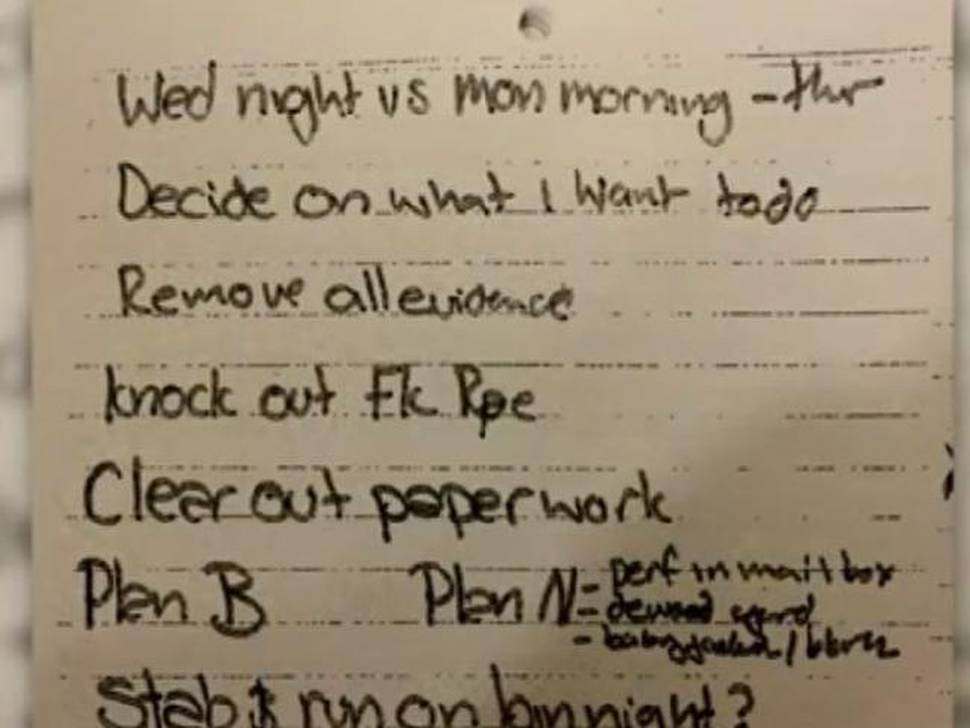 Wed night vs mon morning - thur
Decide on what I want to do
Remove all evidence
knock out Fk Rpe
Clear out paperwork
Plan B Plan N = perf in mail box
- baby
Stab & run on bin night?